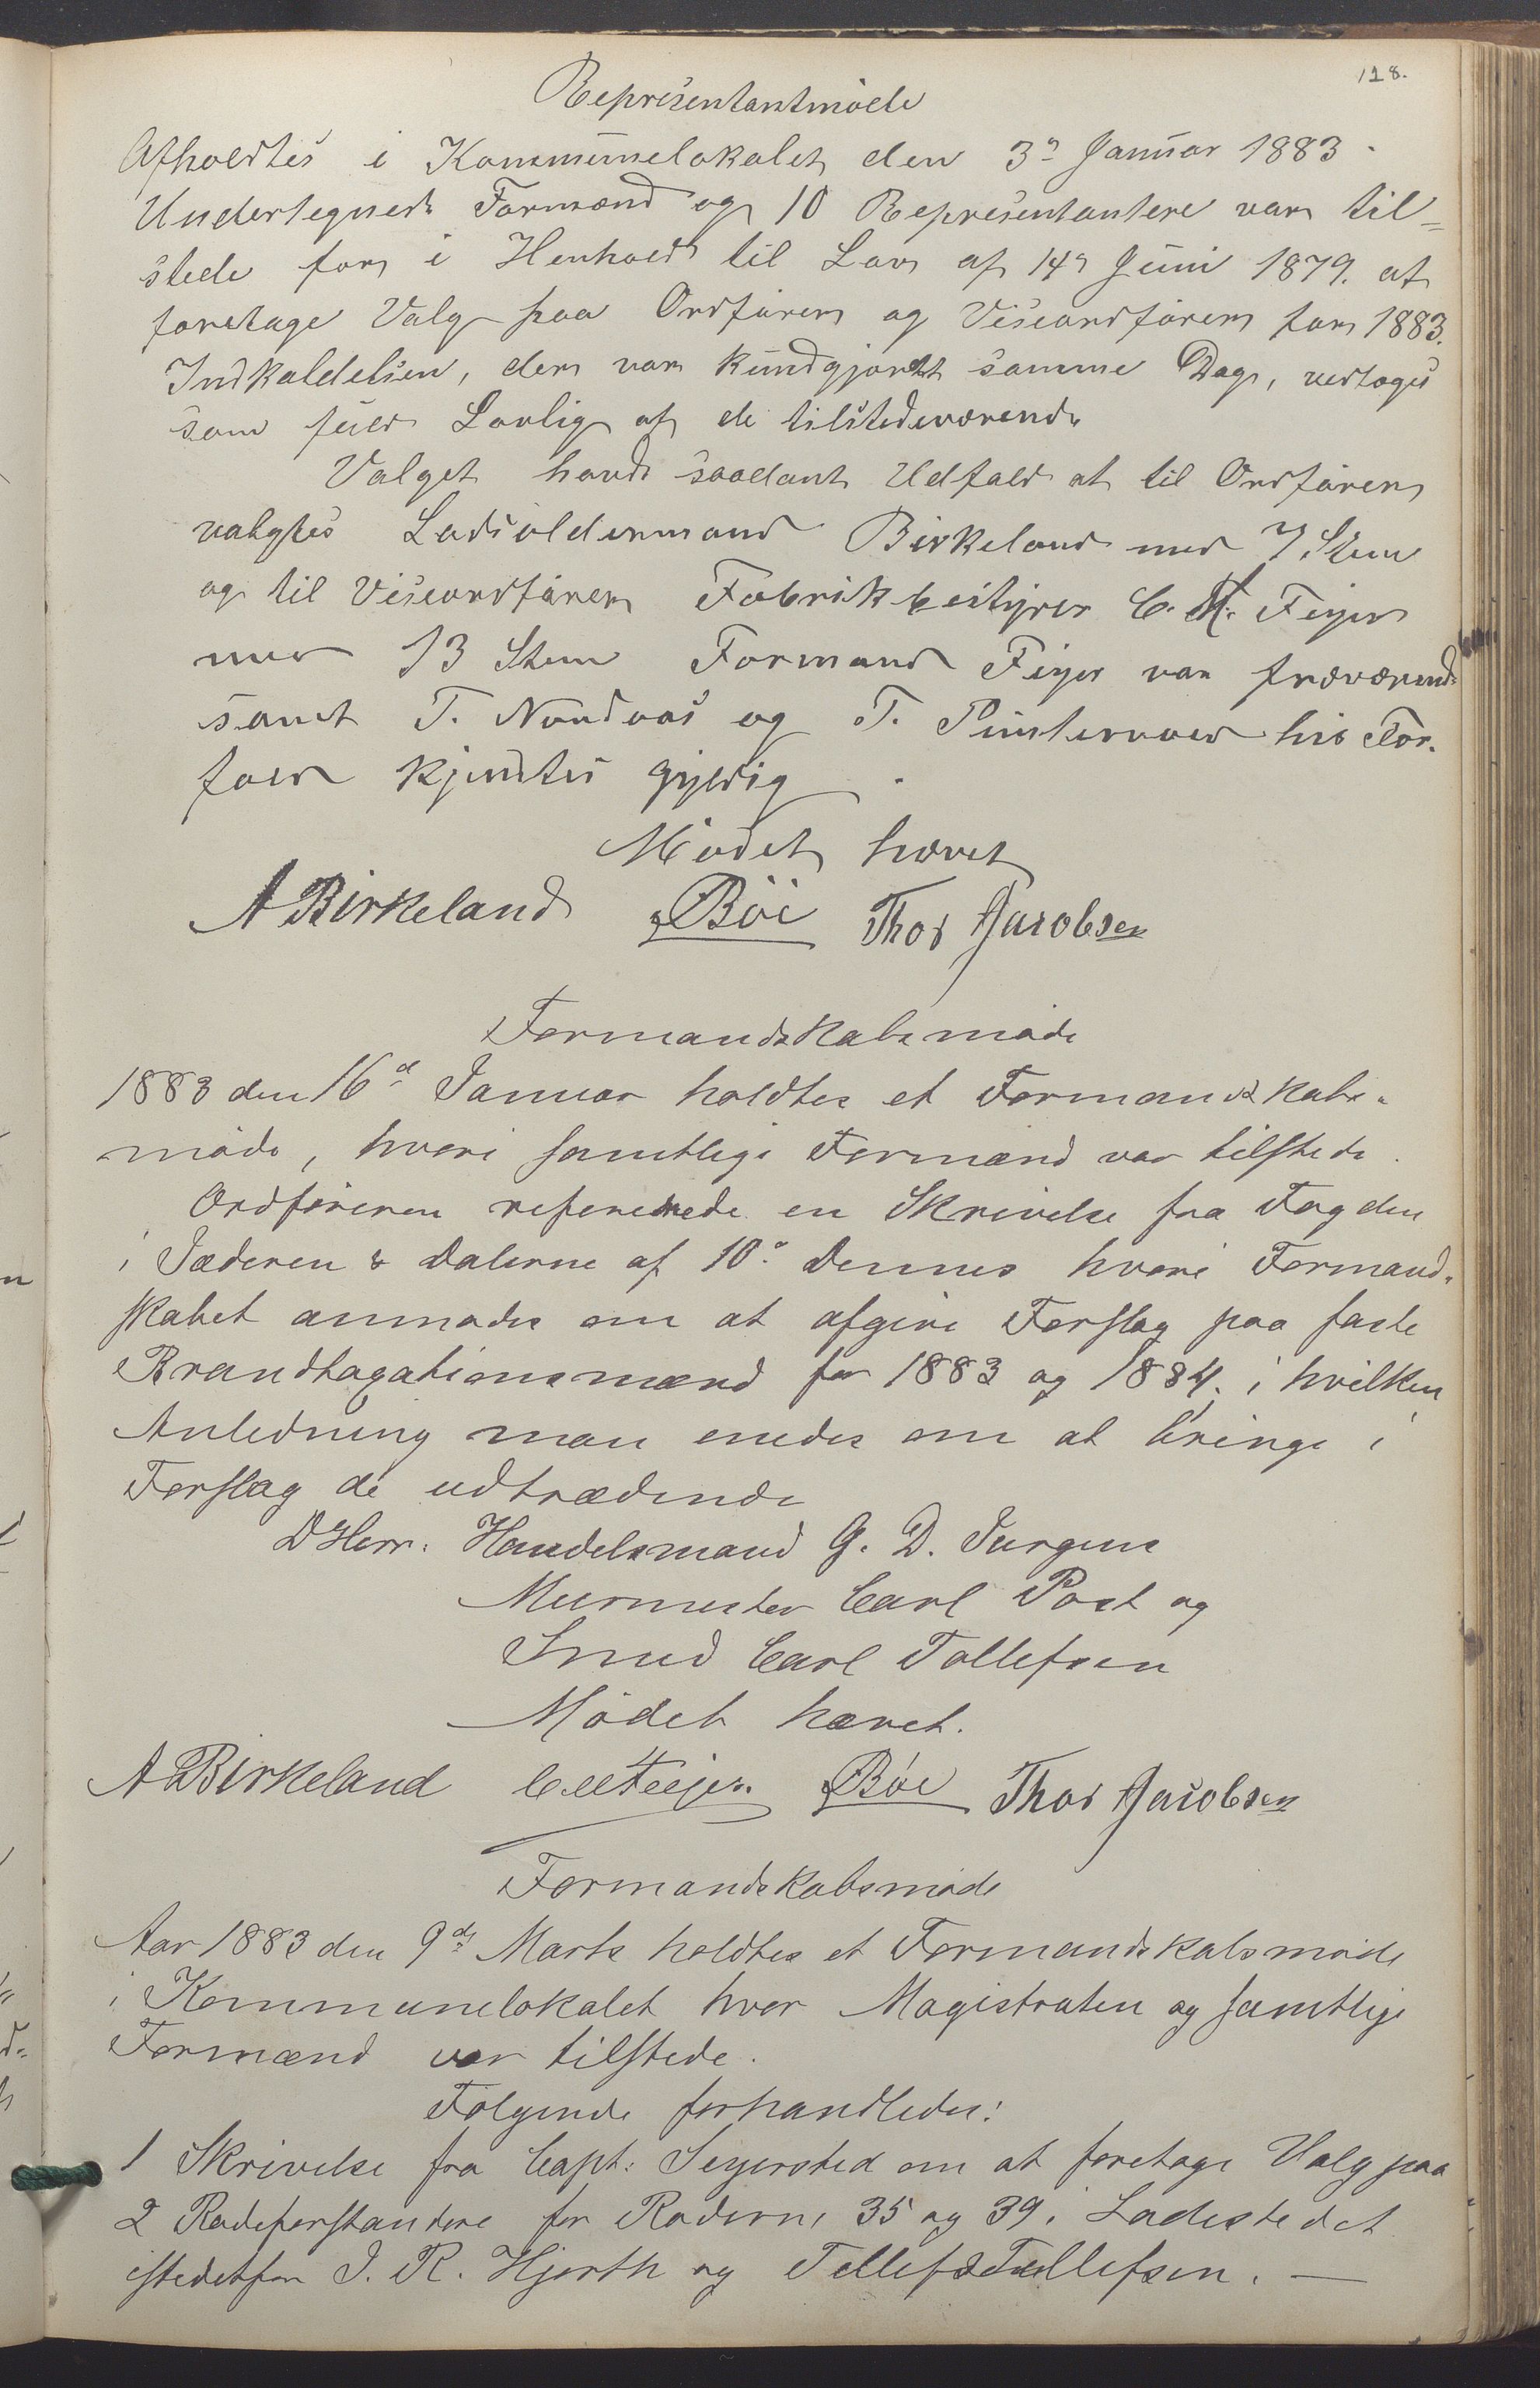 118.
Repræsentantmöde
Afholdtes i Kommunelokalet den 3die Januar 1883.
Undertegnede Formænd og 10 Repræsentantere var til=
stede for i Henhold til Lov af 14de Juni 1879. at
foretage Valg paa Ordfører og Viseordfører for 1883.
Indkaldelsen, der var kundgjordt samme Dag, vedtoges
som fuld Lovlig af de tilstedeværende
Valget havde saadant Udfald at til Ordfører
valgtes Ladsoldermand Birkeland med 7 Stem
og til Viseordfører Fabrikbestyrer C. M. Feyer
med 13 Stem Formand Feyer var fraværende
samt T. Nordaas og T. hvis For.
fald kjendtes gyldig.
Mödet hævet
A Birkeland Böe Thor Jacobsen
Formandskabsmöde
1883 den 16d Januar holdtes et Formandskabs-
möde, hvori samtlige Formænd var tilstede.
Ordføreren refererede en Skrivelse fra Fogden
i Jæderen & Dalerne af 10de Dennes hvori Formand-
skabet anmodes om at afgive Forslag paa faste
Brandtaxationsmænd for 1883 og 1884. i hvilken
Anledning man enedes om at bringe i
Forslag de udtrædende
DHerr. Handelsmand G. D. Jurgens
Murmester Carl Post og
Smed Carl Tollefsen
Mödet hævet.
A Birkeland CMFeijer. Böe Thor Jacobsen
Formandskabsmöde
Aar 1883 den 9de Marts holdtes et Formandskabsmöde
i Kommunelokalet hvor Magistraten og samtlige
Formænd var tilstede.
Følgende forhandledes:
1 Skrivelse fra Capt: Seyersted om at foretage Valg paa
2 Rodeforstandere for Roderne 35 og 39 i Ladestedet
istedetfor J. R. Hjorth og Tollef Tollefsen. —